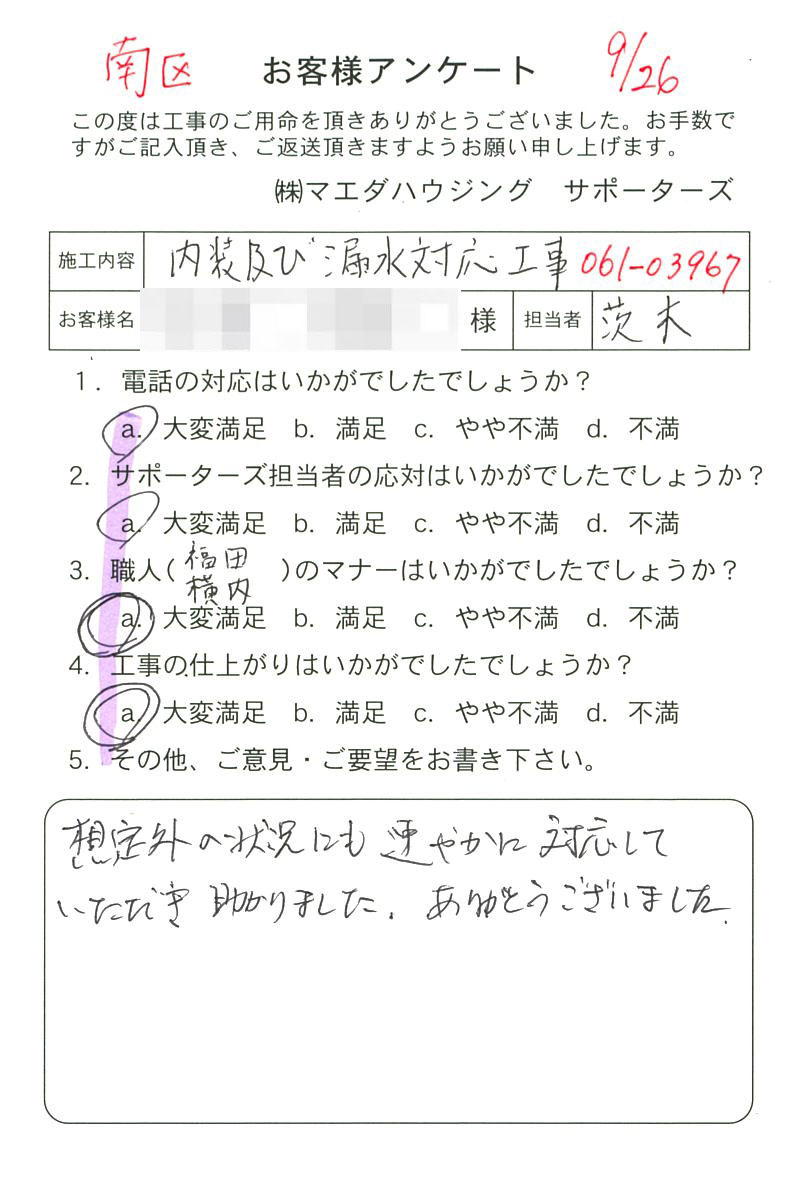 南区 お客様アンケート 9/26
この度は工事のご用命を頂きありがとうございました。お手数で
すがご記入頂き、ご返送頂きますようお願い申し上げます。
㈱マエダハウジング サポーターズ
施工内容 内装及び漏水対応工事 061-03967
お客様名 様 担当者 茨木
1. 電話の対応はいかがでしたでしょうか？
a. 大変満足 b. 満足 c. やや不満 d. 不満
2. サポーターズ担当者の応対はいかがでしたでしょうか？
a. 大変満足 b. 満足 c. やや不満 d. 不満
3. 職人(福田 横内)のマナーはいかがでしたでしょうか？
a. 大変満足 b. 満足 c. やや不満 d. 不満
4. 工事の仕上がりはいかがでしたでしょうか？
a. 大変満足 b. 満足 c. やや不満 d. 不満
5. その他、ご意見・ご要望をお書き下さい。
想定外の状況にも速やかに対応して
いただき助かりました。ありがとうございました。